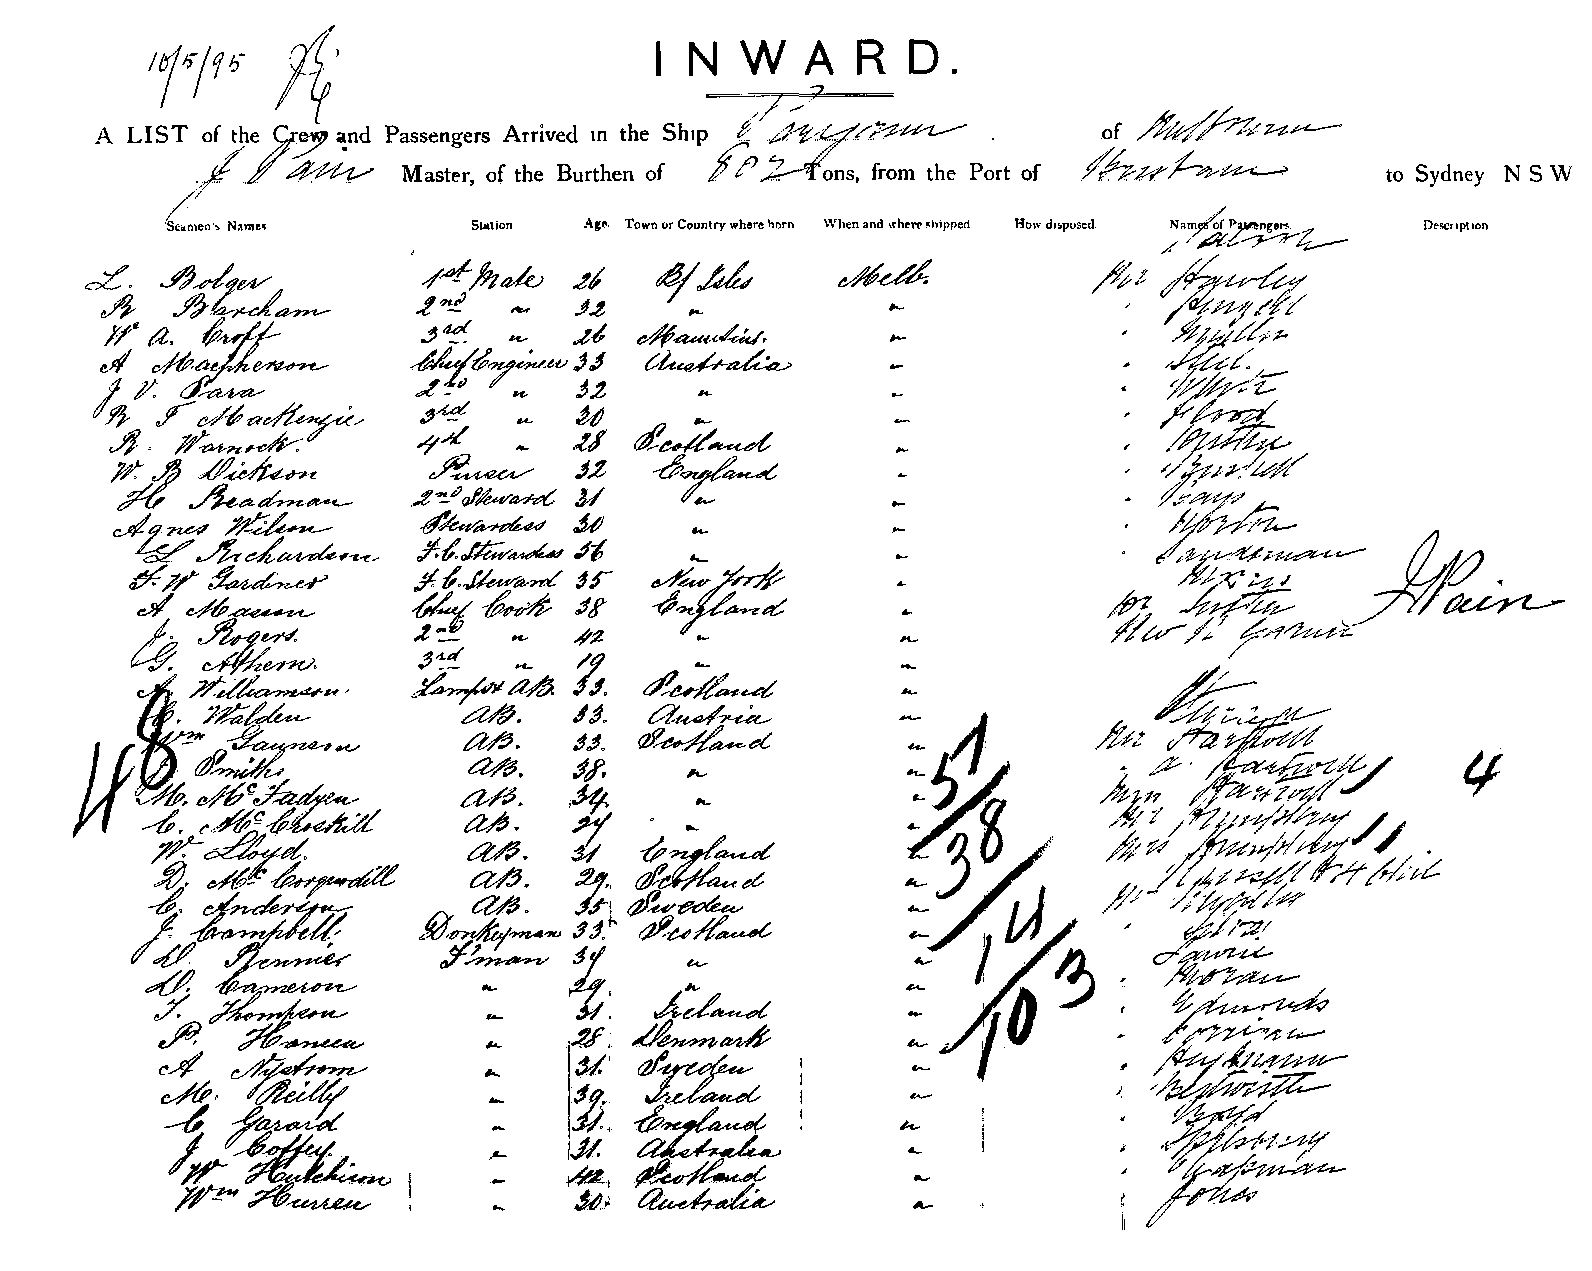 10/5/95
INWARD.
A LIST of the Crew and Passengers Arrived in the Ship of Melbourne
J Pain Master, of the Burthen of 802 Tons, from the Port of to Sydney N S W
Seamen's Names Station Age. Town or Country where born When and where shipped How disposed Names of Passengers Description
Saloon
L. Bolger 1st Mate 26 B/ Isles Melb. Mr Hawley
R Barcham 2nd " 32 " "
W A. Croft 3rd " 26 Mauritius. " " Mueller
A Macpherson Chief Engineer 33 Australia "
J V. Para 2nd " 32 " " " White
R T Mackenzie 3rd " 30 " " " Flood
R. Warnock. 4th " 28 Scotland "
W. B Dickson Purser 32 England " " Russell
H Readman 2nd Steward 31 " " " Bays
Agnes Wilson Stewardess 30 " " " Horton
L Richardson F.C. Stewardess 56 " " " Sandeman
F. W Gardiner F.C. Steward 35 New York "
A Masson Chief Cook 38 England "
J Pain
J. Rogers. 2nd " 42 " "
G. Athern. 3rd " 19 " "
A Williamson. Lamps & AB. 33. Scotland "
C. Walden AB. 33. Austria " Steerage
Wm Gaunson AB. 33. Scotland " Mr Hartwell
Smith AB. 38. " " " A. Hartwell
4
M. McFadyen AB. 34. " " Hartwell
C. McCroskill AB. 24 " " Mr Humphrey
W. Lloyd. AB. 31 England " Mrs Humphrey
D. McCorquodill AB. 29. Scotland " Russell & 4 Chil
C. Anderson AB. 35 Sweden "
J. Campbell. Donkeyman 33. Scotland "
D. Rennier F'man 34 " " Lawrie
D. Cameron " 29. " " " Moran
T. Thompson " 31. Ireland " " Edmonds
P. Hansen " 28 Denmark " " Corrigan
A Nystrom " 31. Sweden "
M. Reilly " 39. Ireland " " Wentworth
C Garard " 31. England " " Boyd
J Coffey. " 31. Australia "
W Hutchison " 42. Scotland " " Chapman
Wm Hurren " 30. Australia " Jones
48
51
38
14
103